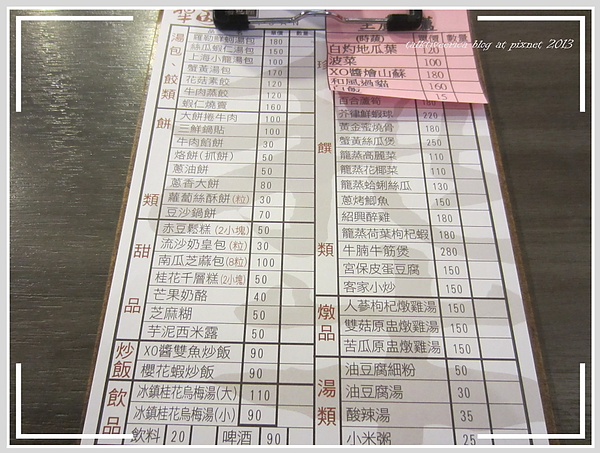 talktweetea blog at pixnet 2013
單價 數量
湯包、餃類
蘿勒鮮蝦湯包 180
絲瓜蝦仁湯包 150
上海小籠湯包 100
蟹黃湯包 170
花菇素餃 120
牛肉蒸餃 120
蝦仁燒賣 160
餅類
大餅捲牛肉 100
三鮮鍋貼 100
牛肉餡餅 30
烙餅(抓餅) 50
蔥油餅 50
蔥香大餅 80
蘿蔔絲酥餅(粒) 30
豆沙鍋餅 70
甜品
赤豆鬆糕(2小塊) 50
流沙奶皇包(粒) 30
南瓜芝蔴包(8粒) 100
桂花千層糕(2小塊) 50
芒果奶酪 40
芝麻糊 50
芋泥西米露 50
炒飯
XO醬雙魚炒飯 90
櫻花蝦炒飯 90
飲品
冰鎮桂花烏梅湯(大) 110
冰鎮桂花烏梅湯(小) 90
飲料 20 啤酒 90
(時蔬) 單價 數量
白灼地瓜葉 120
波菜 100
XO醬燴山蘇 180
和風過貓 160
白飯 15
饌類
百合蘆筍 180
芥褘鮮蝦球 220
黃金蜜燒骨 180
蟹黃絲瓜煲 250
龍蒸高麗菜 110
龍蒸花椰菜 110
龍蒸蛤蜊絲瓜 130
蔥烤鯽魚 150
紹興醉雞 180
龍蒸荷葉枸杞蝦 180
牛腩牛筋煲 280
宮保皮蛋豆腐 150
客家小炒 150
燉品
人蔘枸杞燉雞湯 150
雙菇原盅燉雞湯 150
苦瓜原盅燉雞湯 150
湯類
油豆腐細粉 50
油豆腐湯 30
酸辣湯 35
小米粥 25